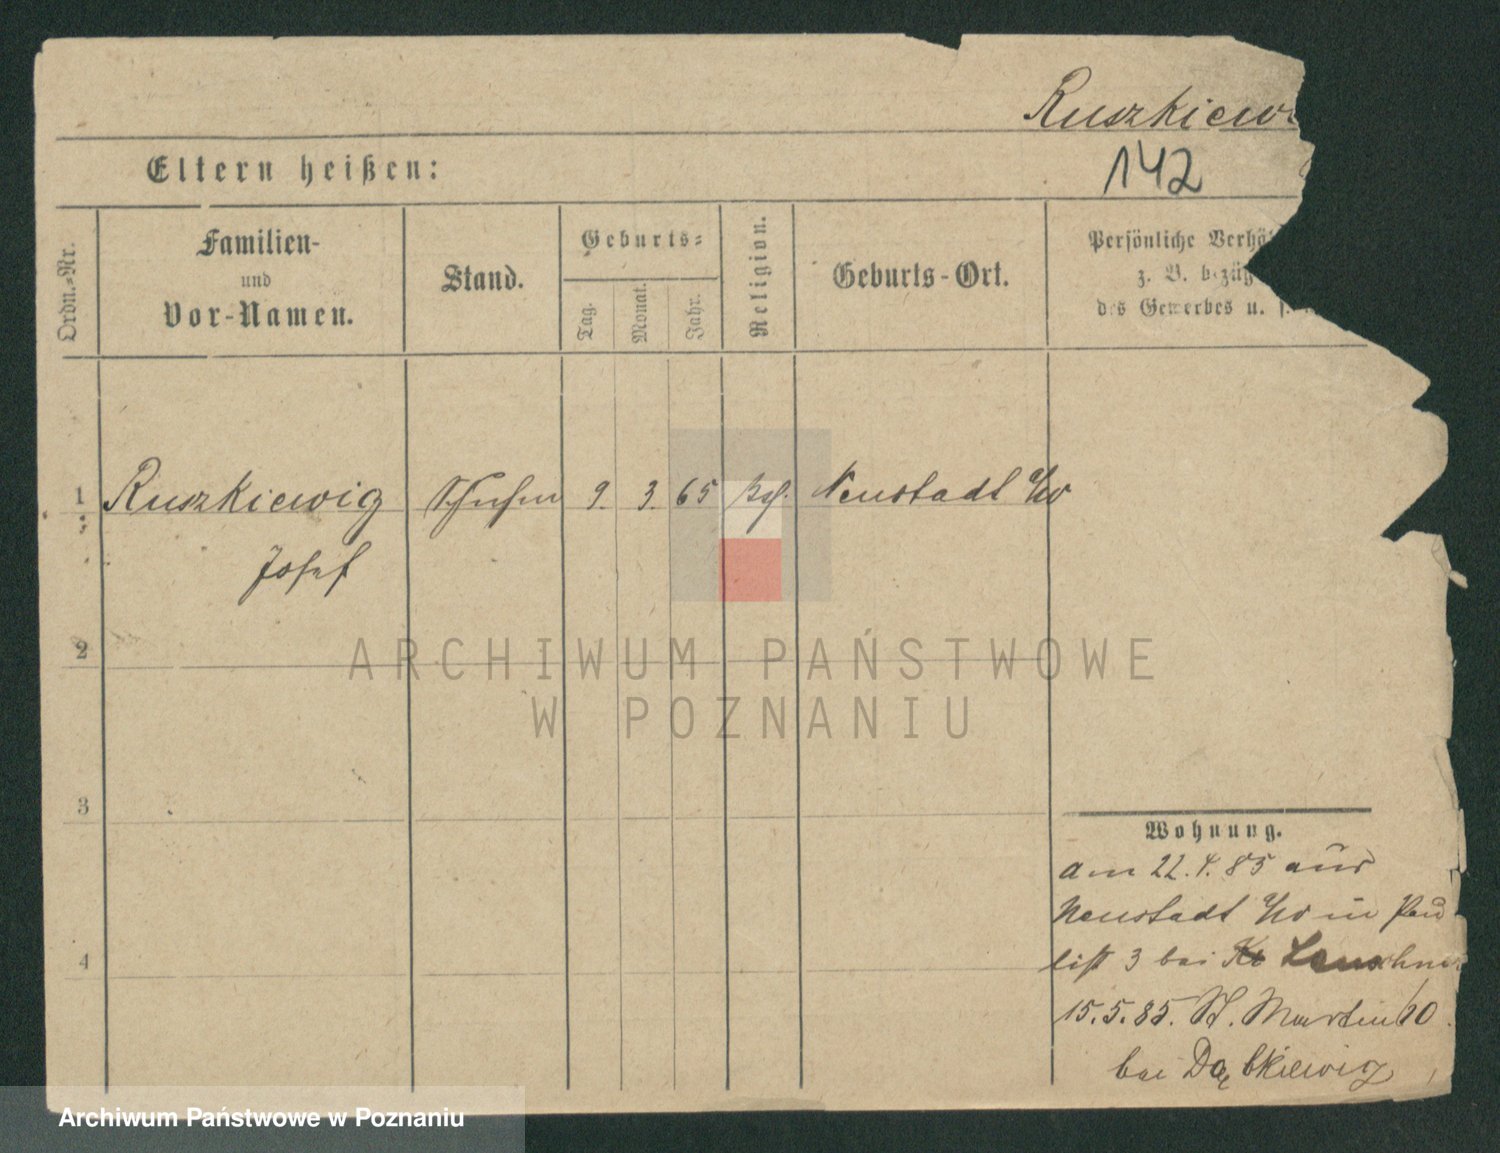 Ruszkiew
142
Eltern heißen:
Ordn.-Nr.
Familien-
und
Vor-Namen.
Stand.
Geburts-
Tag.
Monat.
Jahr.
Religion.
Geburts-Ort.
Persönliche Verhä
z. B. bezüg
des Gewerbes u. s.
1 Ruszkiewicz 9. 3. 65 Neustadt a/W
Josef
2
3
4
Wohnung.
am 22. 4. 85 aus
Neustadt a/W in
3 bei
15. 5. 85. St. Martin
bei Dąbkiewicz
ARCHIWUM PAŃSTWOWE
W POZNANIU
Archiwum Państwowe w Poznaniu